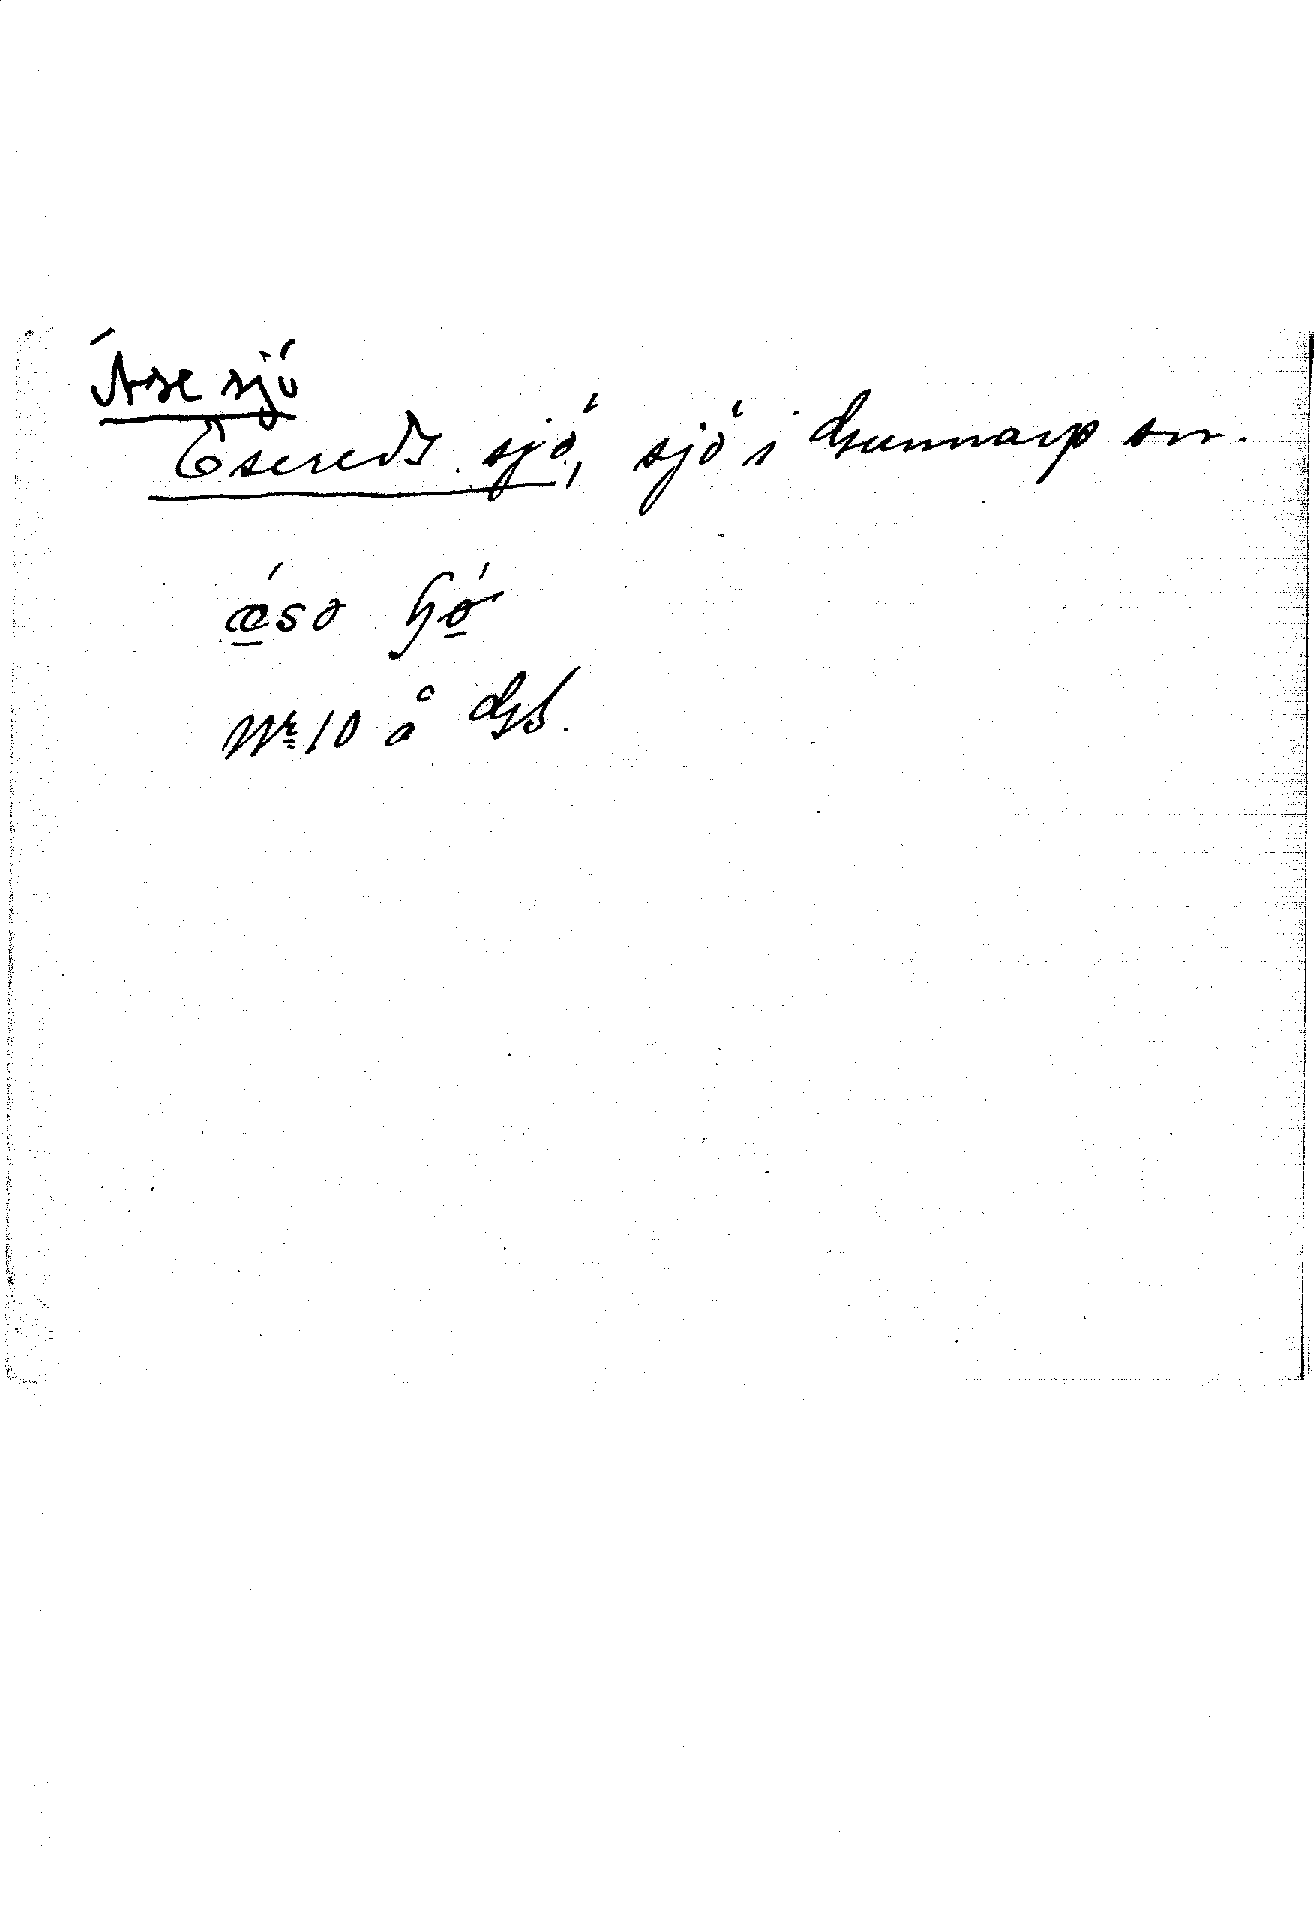 Äse sjö
Esereds sjö, sjö i Gunnarp sn.
ǽsə ɧö́
Nr 10 å Gs.